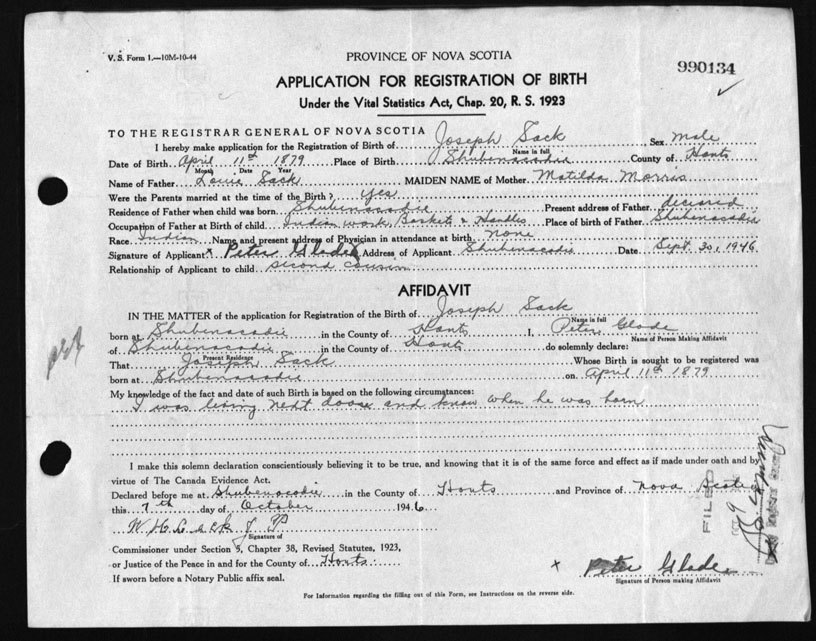 V. S. Form 1.—10M-10-44
PROVINCE OF NOVA SCOTIA
990134
APPLICATION FOR REGISTRATION OF BIRTH
Under the Vital Statistics Act, Chap. 20, R. S. 1923
TO THE REGISTRAR GENERAL OF NOVA SCOTIA
I hereby make application for the Registration of Birth of Joseph Sack Sex Male
Name in full
Date of Birth April 11th 1879 Place of Birth Shubenacadie County of Hants
Month Date Year
Name of Father Louis Sack MAIDEN NAME of Mother Matilda Morris
Were the Parents married at the time of the Birth? Yes
Residence of Father when child was born Shubenacadie Present address of Father deceased
Occupation of Father at Birth of child Indian work Basket & Handles Place of birth of Father Shubenacadie
Race Indian Name and present address of Physician in attendance at birth none
Signature of Applicant x Peter Glade Address of Applicant Shubenacadie Date Sept. 30, 1946
Relationship of Applicant to child second cousin
AFFIDAVIT
IN THE MATTER of the application for Registration of the Birth of Joseph Sack
Name in full
born at Shubenacadie in the County of Hants I, Peter Glode
Name of Person Making Affidavit
of Shubenacadie in the County of Hants do solemnly declare:
Present Residence
That Joseph Sack Whose Birth is sought to be registered was
born at Shubenacadie on April 11th 1879
My knowledge of the fact and date of such Birth is based on the following circumstances:
I was living next doose and know when he was born
I make this solemn declaration conscientiously believing it to be true, and knowing that it is of the same force and effect as if made under oath and by
virtue of The Canada Evidence Act.
Declared before me at Shubenacadie in the County of Hants and Province of Nova Scotia
this 7th day of October 1946
Signature of
Commissioner under Section 9, Chapter 38, Revised Statutes, 1923,
or Justice of the Peace in and for the County of Hants
If sworn before a Notary Public affix seal.
x Peter Glade
Signature of Person making Affidavit
For Information regarding the filling out of this Form, see Instructions on the reverse side.
FILED